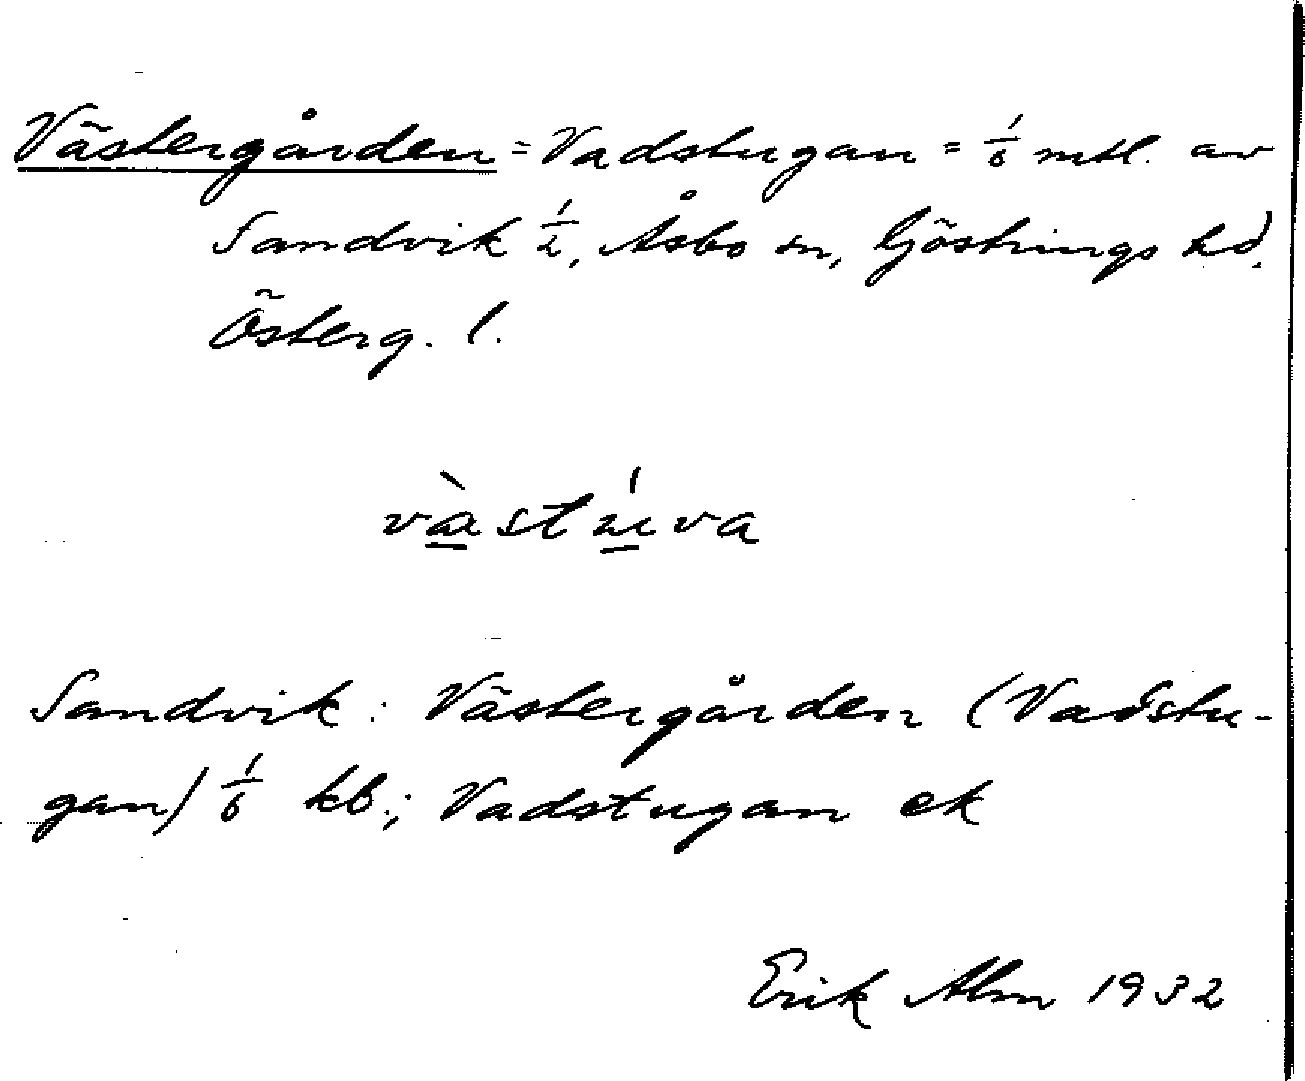 Västergården = Vadstugan = 1/6 mtl. av
Sandvik 1/2, Åsbo sn, Göstrings hd.
Österg. l.
vàstúva
Sandvik: Västergården (Vadstu-
gan) 1/6 kb.; Vadstugan ek
Erik Alm 1932